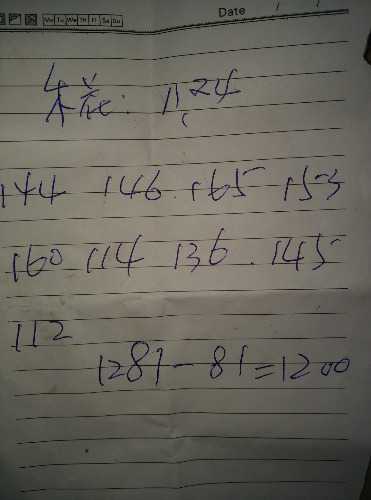 Mo Tu We Th Fr Sa Su Date / /
朱花: 11.24
144 146 165 153
160 114 136 145
112
1281-81=1200